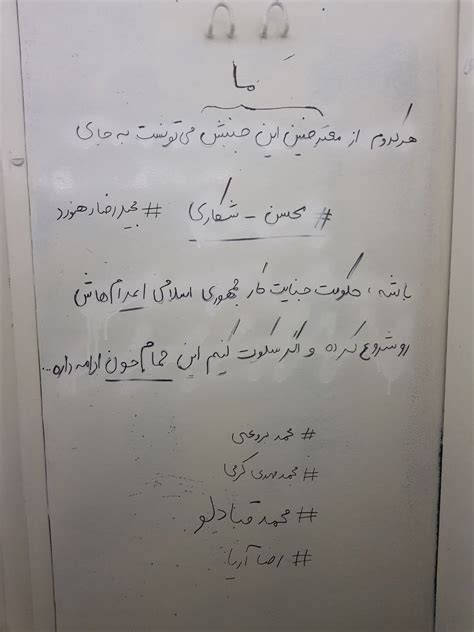 ما
هرکدوم از معترضین این جنبش می‌تونست به جای
#محسن-شکاری #مجیدرضارهنورد
باشه، حکومت جنایت کار جمهوری اسلامی اعدام هاش
رو شروع کرده و اگر سکوت کنیم این حمام خون ادامه داره...
#محمد بروغنی
#محمدمهدی کرمی
#محمد قبادلو
#رضا آریا